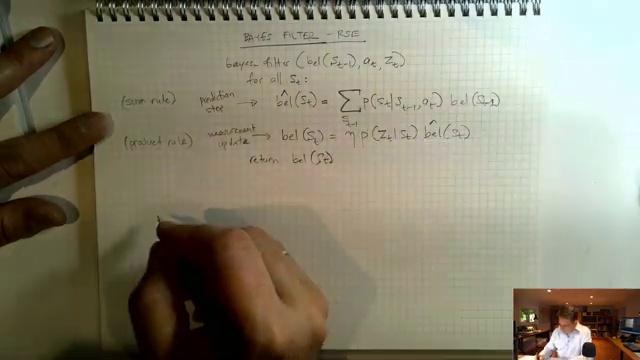 BAYES FILTER - RSE
bayes filter (bel(S_{t-1}), a_t, z_t)
for all S_t:
(sum rule) prediction step → b̂el(S_t) = Σ_{S_{t-1}} p(S_t | S_{t-1}, a_t) bel(S_{t-1})
(product rule) measurement update → bel(S_t) = η p(z_t | S_t) b̂el(S_t)
return bel(S_t)